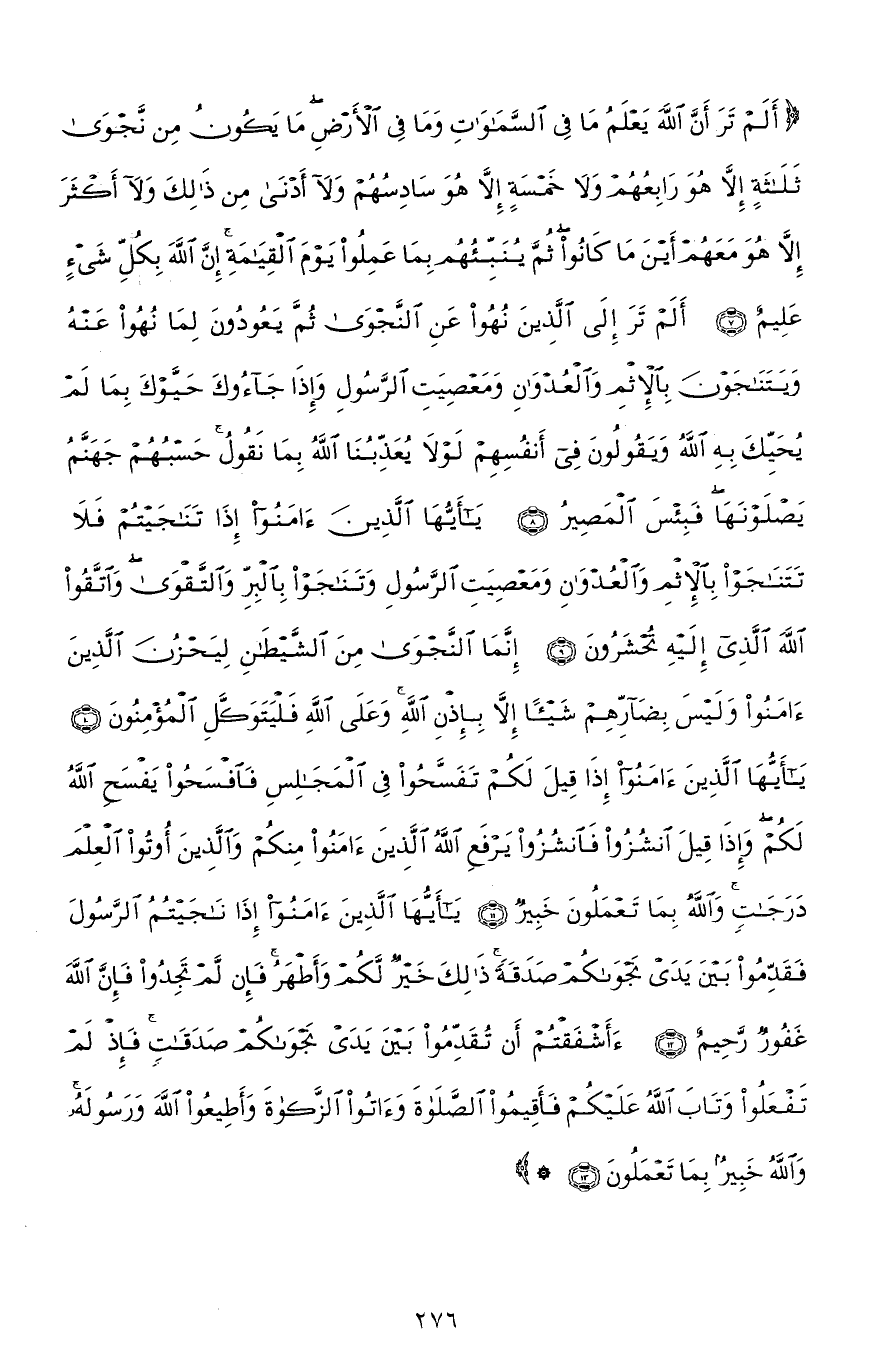 ﴿ أَلَمْ تَرَ أَنَّ ٱللَّهَ يَعْلَمُ مَا فِى ٱلسَّمَـٰوَٰتِ وَمَا فِى ٱلْأَرْضِۖ مَا يَكُونُ مِن نَّجْوَىٰ
ثَلَـٰثَةٍ إِلَّا هُوَ رَابِعُهُمْ وَلَا خَمْسَةٍ إِلَّا هُوَ سَادِسُهُمْ وَلَآ أَدْنَىٰ مِن ذَٰلِكَ وَلَآ أَكْثَرَ
إِلَّا هُوَ مَعَهُمْ أَيْنَ مَا كَانُوا۟ۖ ثُمَّ يُنَبِّئُهُم بِمَا عَمِلُوا۟ يَوْمَ ٱلْقِيَـٰمَةِۚ إِنَّ ٱللَّهَ بِكُلِّ شَىْءٍ
عَلِيمٌ ٧ أَلَمْ تَرَ إِلَى ٱلَّذِينَ نُهُوا۟ عَنِ ٱلنَّجْوَىٰ ثُمَّ يَعُودُونَ لِمَا نُهُوا۟ عَنْهُ
وَيَتَنَـٰجَوْنَ بِٱلْإِثْمِ وَٱلْعُدْوَٰنِ وَمَعْصِيَتِ ٱلرَّسُولِ وَإِذَا جَآءُوكَ حَيَّوْكَ بِمَا لَمْ
يُحَيِّكَ بِهِ ٱللَّهُ وَيَقُولُونَ فِىٓ أَنفُسِهِمْ لَوْلَا يُعَذِّبُنَا ٱللَّهُ بِمَا نَقُولُۚ حَسْبُهُمْ جَهَنَّمُ
يَصْلَوْنَهَاۖ فَبِئْسَ ٱلْمَصِيرُ ٨ يَـٰٓأَيُّهَا ٱلَّذِينَ ءَامَنُوٓا۟ إِذَا تَنَـٰجَيْتُمْ فَلَا
تَتَنَـٰجَوْا۟ بِٱلْإِثْمِ وَٱلْعُدْوَٰنِ وَمَعْصِيَتِ ٱلرَّسُولِ وَتَنَـٰجَوْا۟ بِٱلْبِرِّ وَٱلتَّقْوَىٰۖ وَٱتَّقُوا۟
ٱللَّهَ ٱلَّذِىٓ إِلَيْهِ تُحْشَرُونَ ٩ إِنَّمَا ٱلنَّجْوَىٰ مِنَ ٱلشَّيْطَـٰنِ لِيَحْزُنَ ٱلَّذِينَ
ءَامَنُوا۟ وَلَيْسَ بِضَآرِّهِمْ شَيْـًٔا إِلَّا بِإِذْنِ ٱللَّهِۚ وَعَلَى ٱللَّهِ فَلْيَتَوَكَّلِ ٱلْمُؤْمِنُونَ ١٠
يَـٰٓأَيُّهَا ٱلَّذِينَ ءَامَنُوٓا۟ إِذَا قِيلَ لَكُمْ تَفَسَّحُوا۟ فِى ٱلْمَجَـٰلِسِ فَٱفْسَحُوا۟ يَفْسَحِ ٱللَّهُ
لَكُمْۖ وَإِذَا قِيلَ ٱنشُزُوا۟ فَٱنشُزُوا۟ يَرْفَعِ ٱللَّهُ ٱلَّذِينَ ءَامَنُوا۟ مِنكُمْ وَٱلَّذِينَ أُوتُوا۟ ٱلْعِلْمَ
دَرَجَـٰتٍۚ وَٱللَّهُ بِمَا تَعْمَلُونَ خَبِيرٌ ١١ يَـٰٓأَيُّهَا ٱلَّذِينَ ءَامَنُوٓا۟ إِذَا نَـٰجَيْتُمُ ٱلرَّسُولَ
فَقَدِّمُوا۟ بَيْنَ يَدَىْ نَجْوَىٰكُمْ صَدَقَةًۚ ذَٰلِكَ خَيْرٌ لَّكُمْ وَأَطْهَرُۚ فَإِن لَّمْ تَجِدُوا۟ فَإِنَّ ٱللَّهَ
غَفُورٌ رَّحِيمٌ ١٢ ءَأَشْفَقْتُمْ أَن تُقَدِّمُوا۟ بَيْنَ يَدَىْ نَجْوَىٰكُمْ صَدَقَـٰتٍۚ فَإِذْ لَمْ
تَفْعَلُوا۟ وَتَابَ ٱللَّهُ عَلَيْكُمْ فَأَقِيمُوا۟ ٱلصَّلَوٰةَ وَءَاتُوا۟ ٱلزَّكَوٰةَ وَأَطِيعُوا۟ ٱللَّهَ وَرَسُولَهُۥۚ
وَٱللَّهُ خَبِيرٌۢ بِمَا تَعْمَلُونَ ١٣ * ﴾
٢٧٦